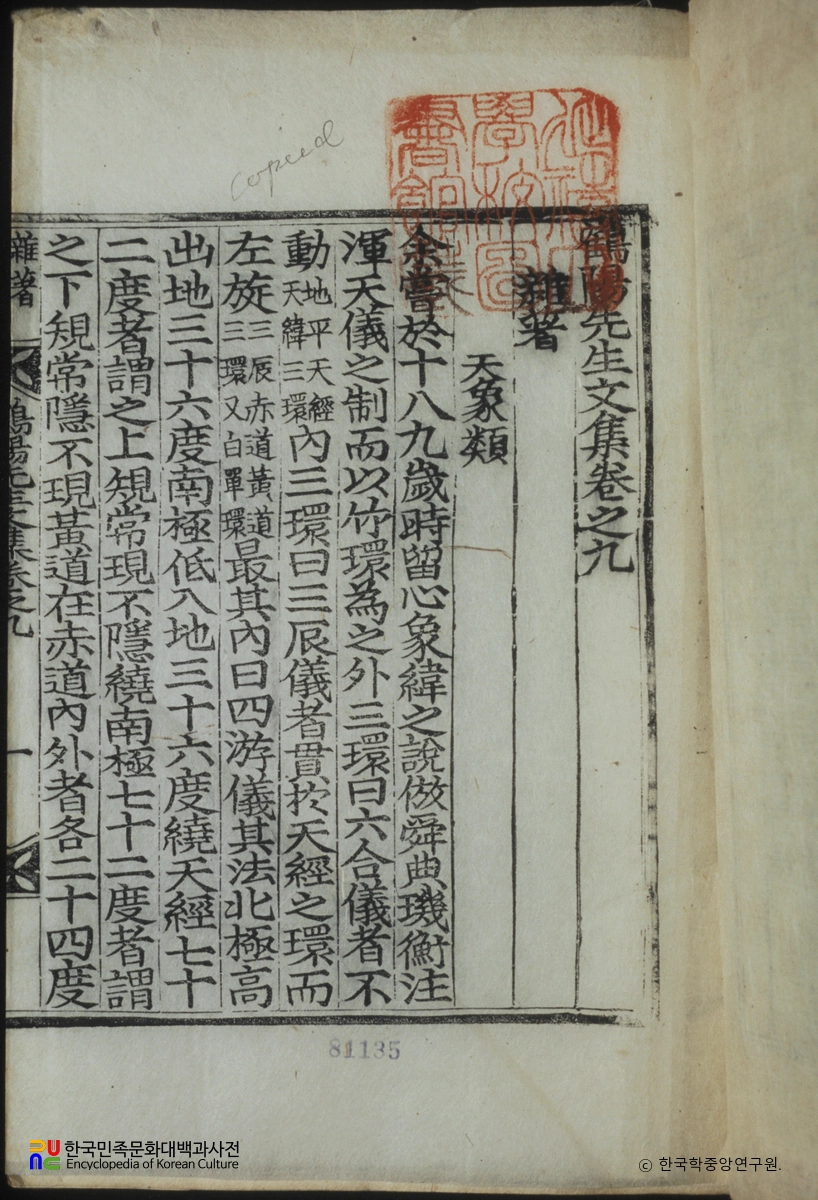 copied
鶴陽先生文集卷之九
雜著
天象類
余嘗於十八九歲時留心象緯之說倣舜典璣衡注
渾天儀之制而以竹環為之外三環曰六合儀者不
動地平天經天緯三環內三環曰三辰儀者貫於天經之環而
左旋三辰赤道黃道三環又白單環最其內曰四游儀其法北極高
出地三十六度南極低入地三十六度繞天經七十
二度者謂之上䂓常現不隱繞南極七十二度者謂
之下䂓常隱不現黃道在赤道內外者各二十四度
雜著 鶴陽先生文集卷之九 一
81135
한국민족문화대백과사전
Encyclopedia of Korean Culture
© 한국학중앙연구원.